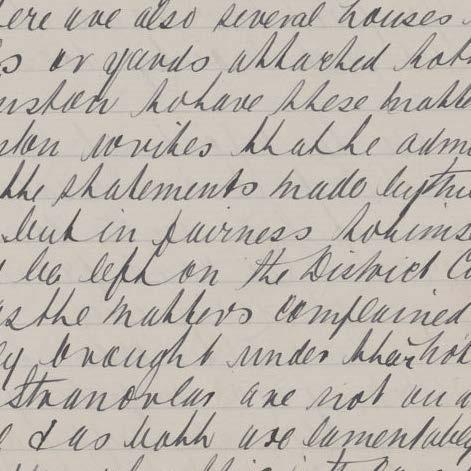 ere are also several houses
s or yards attached both
nston to have these matte
ston writes that he adm
the statements made by the
but in fairness to hims
be left on the District C
as the matters complained
ly brought under that not
Stranorlar are not on a
& as both are lamentably